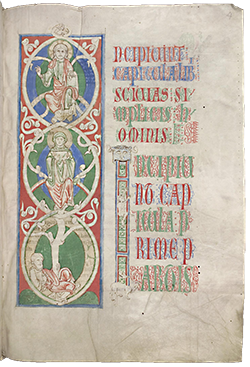 NCIPIUNT
CAPITULA LIB
SCIVIAS SI
PLICIS H
OMINIS
INCIPIU
NT CAP
ITULA P
RIME P
ARTIS